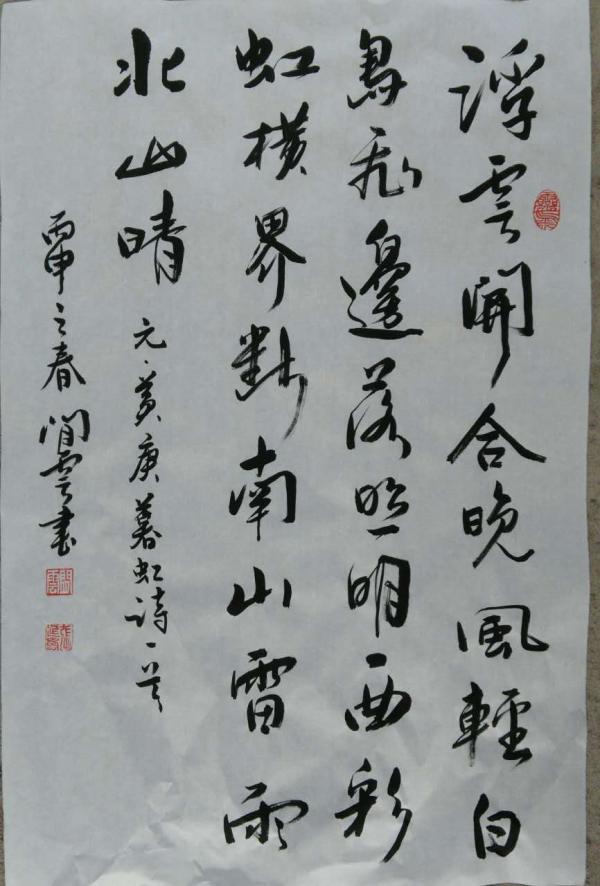 浮雲開合晚風輕白
鳥飛邊落照明一曲彩
虹橫界斷南山雷雨
北山晴
元·黃庚暮虹詩一首
丙申之春閒雲書